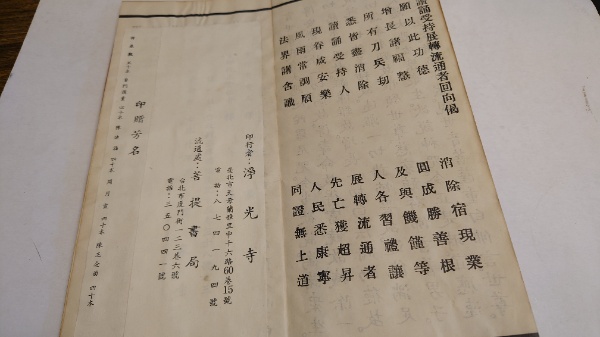 讀誦受持展轉流通者回向偈
願以此功德　消除宿現業
增長諸福慧　圓成勝善根
所有刀兵劫　及與饑饉等
悉皆盡消除　人各習禮讓
讀誦受持人　展轉流通者
現眷咸安樂　先亡獲超昇
風雨常調順　人民悉康寧
法界諸含識　同證無上道
印行者：淨光寺
臺北市天母蘭雅里中十六路60巷15號
電話：八七四一一九四號
流通處：菩提書局
台北西連門街一二三巷六號
電話：三五〇四四一號
印贈芳名